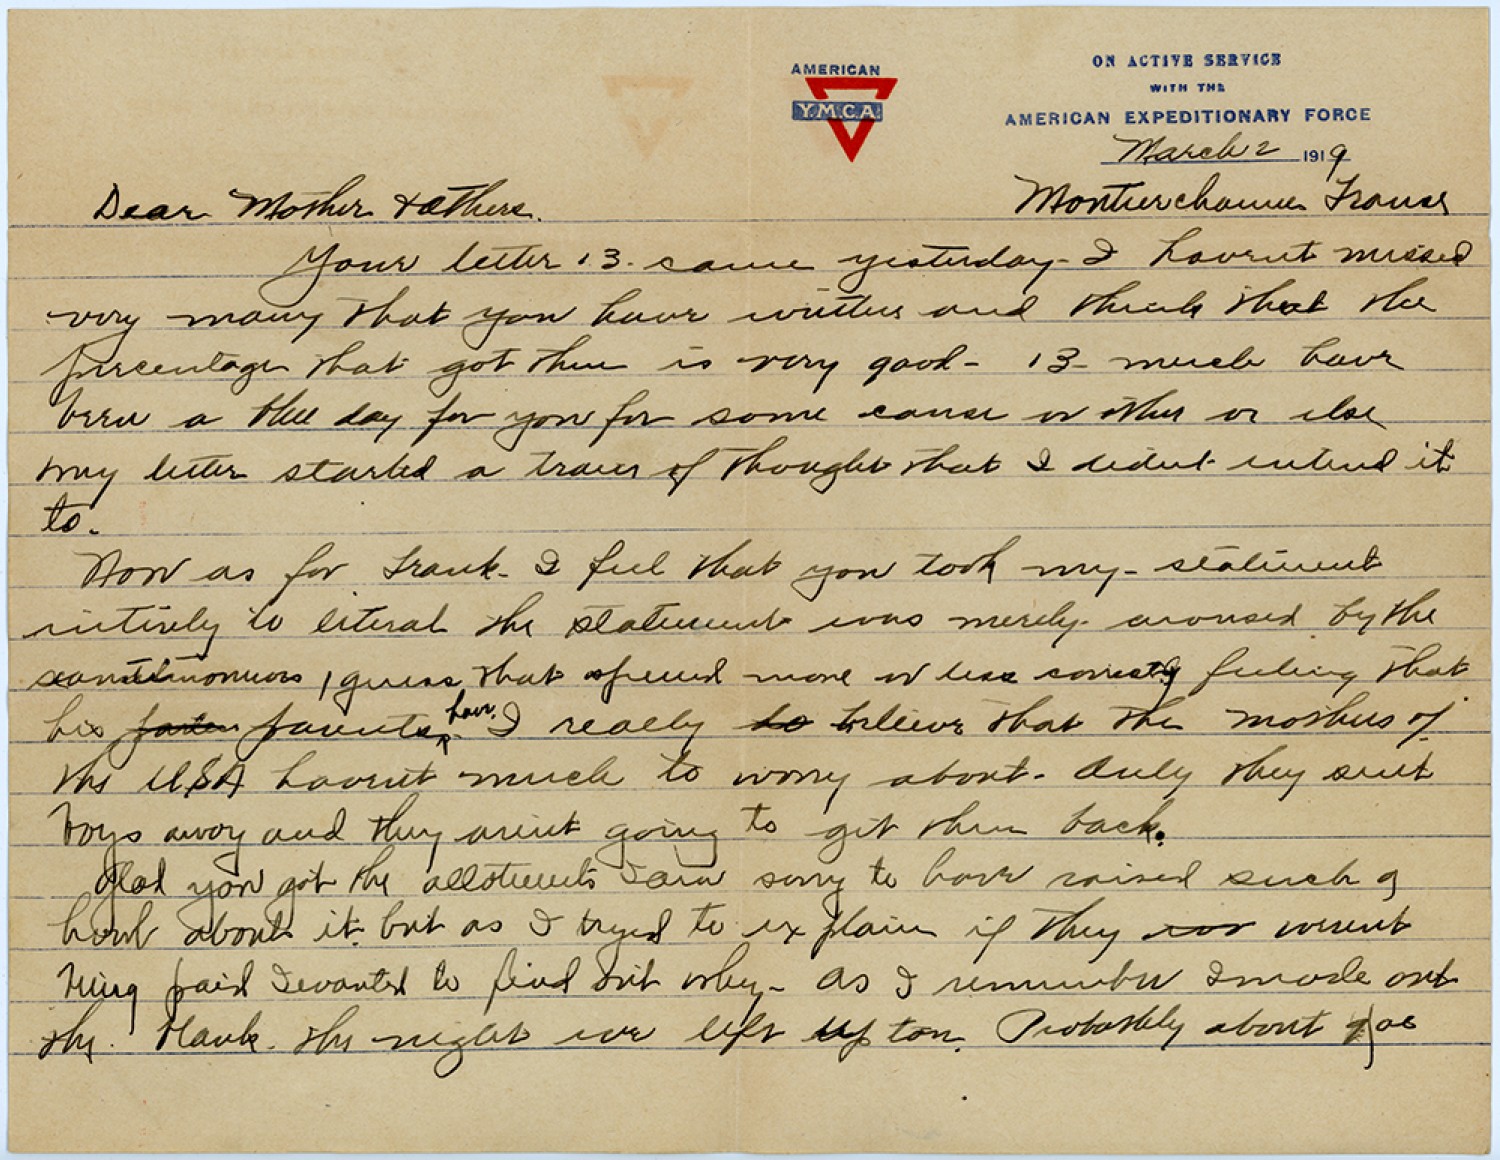 AMERICAN
YMCA
ON ACTIVE SERVICE
WITH THE
AMERICAN EXPEDITIONARY FORCE
March 2 1919
Dear Mother & Others. France
Your letter 13. came yesterday - I havent missed
very many that you have written and think that the
percentage that got thru is very good - 13 - much have
been a blue day for you for some cause or other or else
my letter started a train of thought that I didnt intend it
to.
Now as for Frank - I feel that you took my statement
intirely to literal the statement was merely aroused by the
I guess that spread more or less feeling that
his parents have. I really to believe that the mothers of
the USA havent much to worry about - Only they sent
boys away and they arent going to get them back.
Glad you got the allotments I am sorry to have raised such a
howl about it but as I tryed to explain if they werent
being paid I wanted to find out why - as I remember I made out
the blank the night we left Upton. Probably about